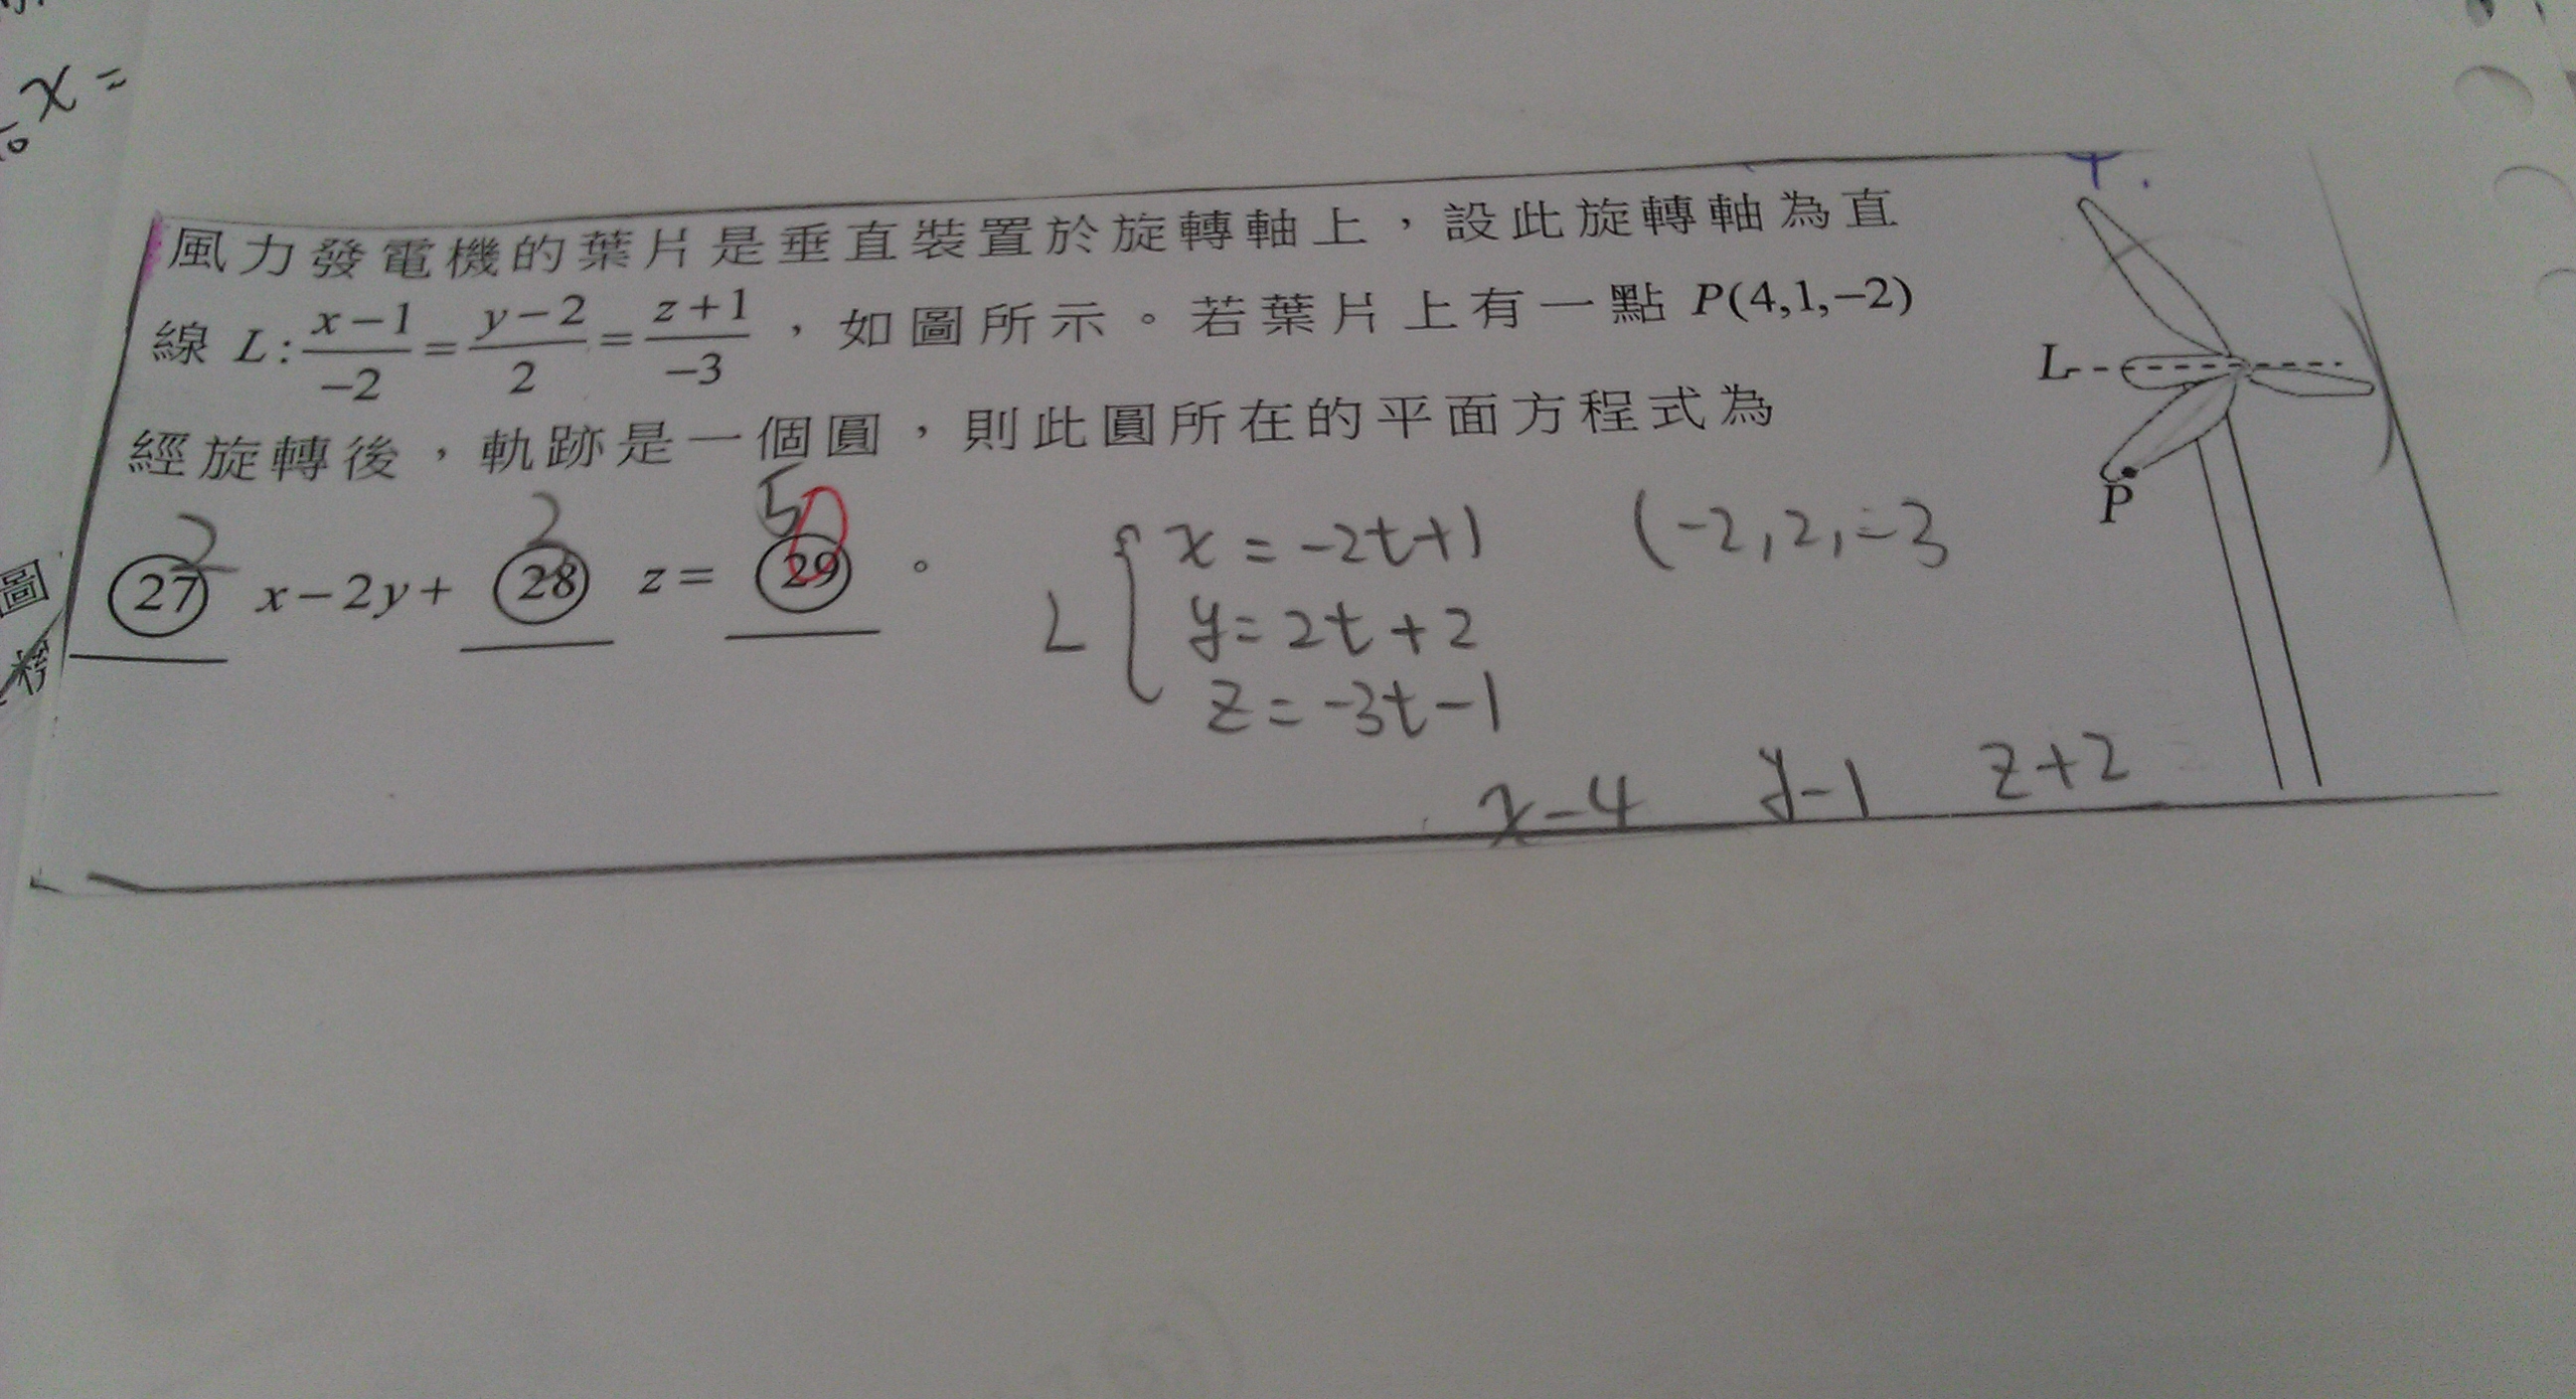 x=
風力發電機的葉片是垂直裝置於旋轉軸上，設此旋轉軸為直
線 L:\frac{x-1}{-2}=\frac{y-2}{2}=\frac{z+1}{-3}，如圖所示。若葉片上有一點 P(4,1,−2)
經旋轉後，軌跡是一個圓，則此圓所在的平面方程式為
2 2 5
㉗ x−2y+ ㉘ z= ㉙ 。
L
P
L { x = -2t+1
y = 2t+2
z = -3t-1
(-2,2,-3
x-4 y-1 z+2
圖